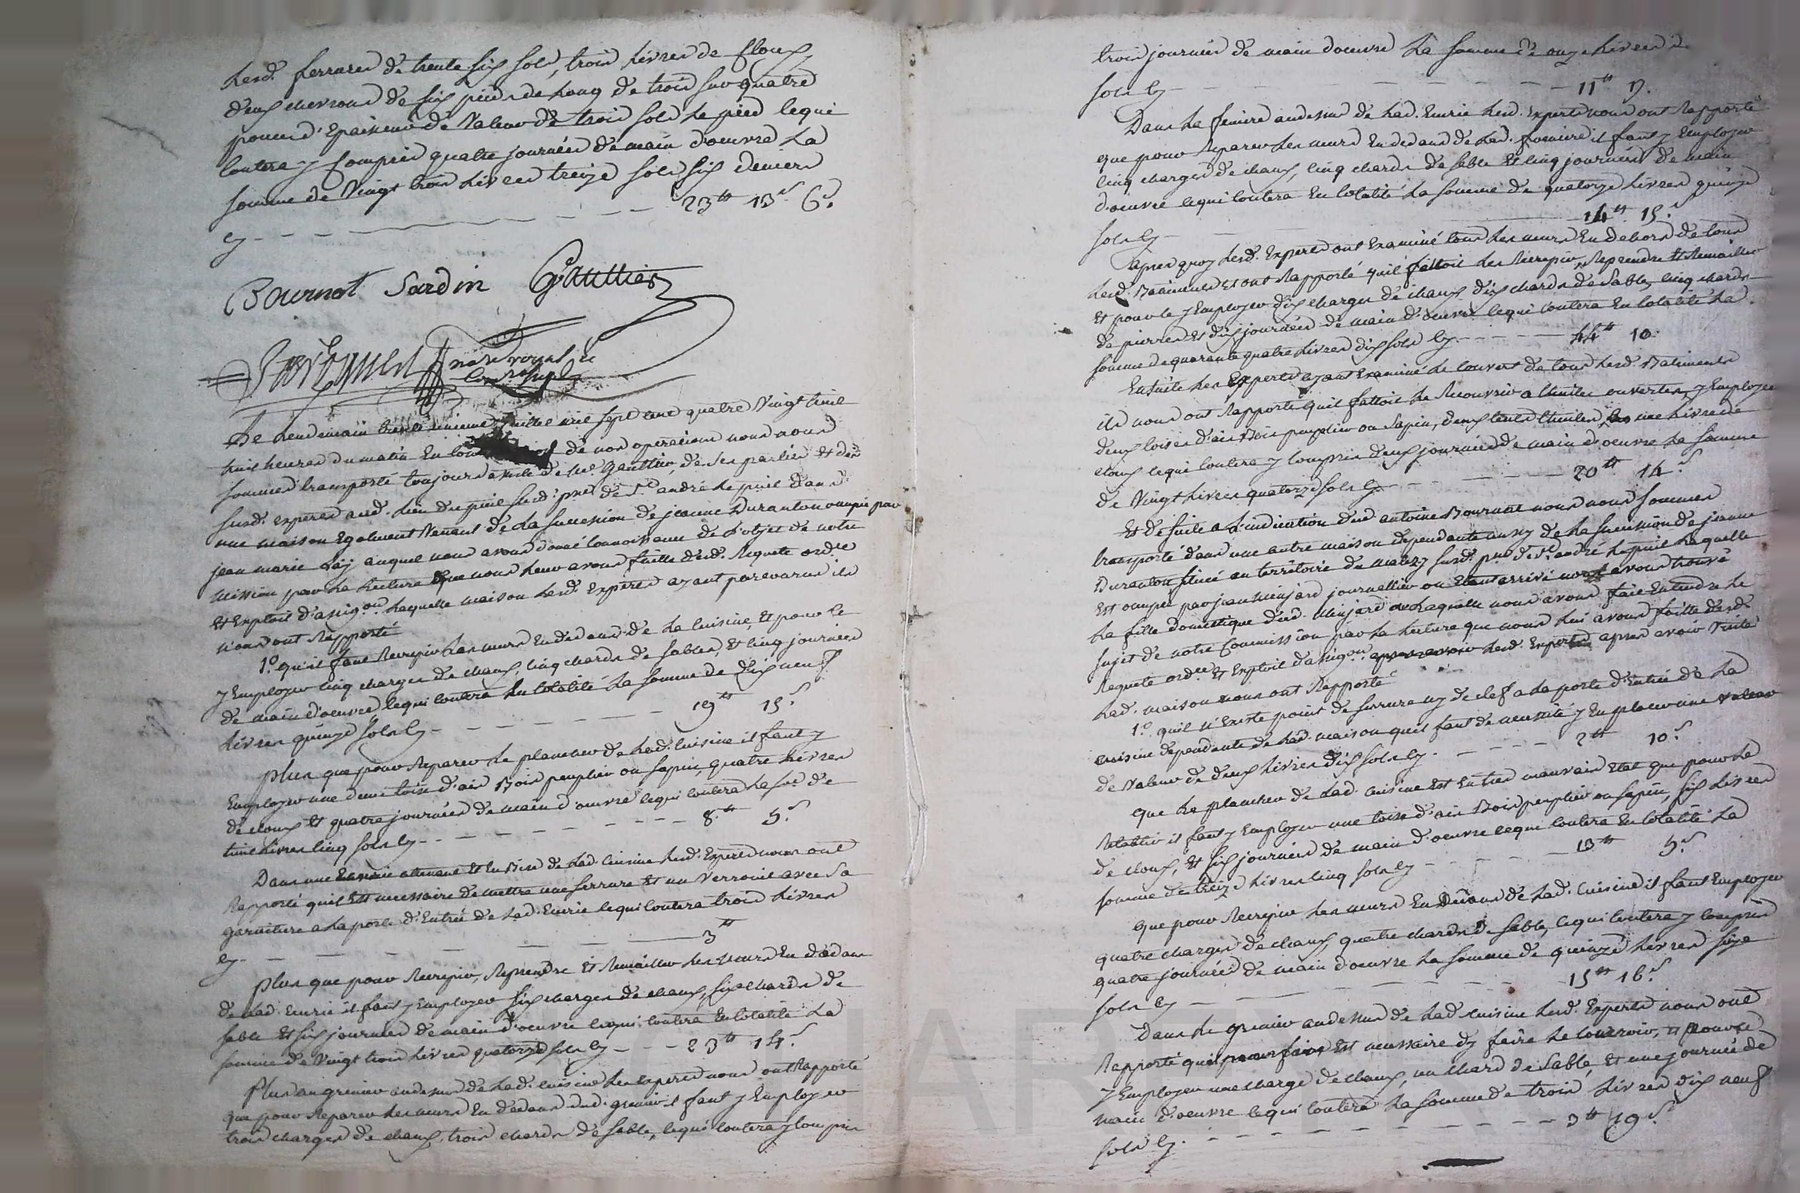 lesd. ferrures de trente six sols, trois livres de cloux
deux chevrons de six pieds de long de trois sur quatre
pouces d'Epaisseur de valeur de trois sols le pied lequi
coutera y compris quatre journées de main d'oeuvre La
somme de Vingt trois Livres treize sols six deniers
cy - - - - - 23tt 13s 6d.
Bournot Sardin Gaultier
no.re royal
Le Lendemain juillet mil sept cent quatre Vingt
huit heures du matin En de nos operations nous nous
sommes transporté toujours assisté de Me Gaultier de Ses parties et des
susd. experts aud. lieu du puit susd. psse de St andré le puit dans
une maison Egalement Venant de La succession de jeanne Duranton occupée par
jean marie auquel nous avons donné connoissance de L'objet de notre
mission par La Lecture Que nous Leur avons faitte desd. Requete ordce
et Exploit d'assigon. Laquelle maison lesd. Experts ayant parcourue ils
nous ont Rapporté
1° qu'il faut Recrepir Les murs En dedans de La Cuisine, Et pour le
y Employer cinq charges de chaux, cinq chards de sables Et cinq journées
de main d'oeuvre lequi coutera En totalité La somme de dix neuf
Livres quinze sols cy - - - - - 19tt 15s
plus que pour Reparer Le plancher de Lad. Cuisine il faut y
Employer une demie toise d'ais Bois peuplier ou sapin, quatre Livres
de cloux Et quatre journées de main d'oeuvre lequi coutera La se de
huit Livres cinq sols cy - - - - - 8tt 5s
Dans une Ecurie attenant Et En Bise de Lad. Cuisine Lesd. Experts nous ont
Rapporté quil Est necessaire de mettre une serrure Et un verrouil avec sa
garniture a la porte d'Entrée de Lad. Ecurie lequi coutera trois Livres
cy - - - - - 3tt
Plus que pour Recrepir, Reprendre Et Remailler Les murs En dedans
de Lad. Ecurie il faut y Employer six charges de chaux, six chards de
sable Et six journées de main d'oeuvre lequi coutera En totalité La
somme de Vingt trois Livres quatorze sols cy - - - 23tt 14s
Plus au grenier audessus de Lad. cuisine Les experts nous ont Rapporté
que pour Reparer Les murs En dedans dud. grenier il faut y Employer
trois charges de chaux, trois chards de sable, lequi coutera y compris
trois journées de main d'oeuvre La somme de onze Livres
sols cy - - - - - 11tt
Dans La feniere audessus de Lad. Ecurie Lesd. Experts nous ont Rapporté
que pour Reparer Les murs En dedans de Lad. feniere il faut y Employer
cinq charges de chaux, cinq chards de sable Et cinq journées de main
d'oeuvre lequi coutera En totalité La somme de quatorze Livres quinze
sols cy - - - - - 14tt 15s
apres quoy Lesd. Experts ont Examiné tous Les murs En dehors de tous
Lesd. Batiments et ont Rapporté qu'il falloit Les Recrepir, Reprendre Et Remailler
Et pour le y Employer dix charges de chaux dix chards de sable, cinq chards
de pierres Et dix journées de main d'oeuvre lequi coutera En totalité La
somme de quarante quatre Livres dix sols cy - - - - 44tt 10
Ensuite Les Experts ayant Examiné Le couvert de tous Lesd. Batiments
ils nous ont Rapporté quil falloit Le Recouvrir a thuiles ouvertes, y Employer
deux toises d'ais Bois peuplier ou sapin, deux cents thuiles, une Livre de
cloux lequi coutera y compris deux journées de main d'oeuvre La somme
de Vingt Livres quatorze sols cy - - - - - 20tt 14s
Et de suite a L'indication dud antoine Bournot nous nous sommes
transporté dans une autre maison dependante aussy de La succession de jeanne
Duranton située au territoire de susd. psse de St andré Le puit Laquelle
Est occupée par jean Minjard journallier ou Etant arrivé nous avons trouvé
La fille domestique dud. Minjard a Laquelle nous avons fait Entendre Le
sujet de notre Commission par La Lecture que nous Lui avons faitte desd.
Requete ordce Et Exploit d'assigon. Lesd. Experts apres avoir Visité
Lad. maison nous ont Rapporté
1° quil n'Existe point de serrure ny de clef a La porte d'Entrée de La
cuisine dependante de Lad. maison quil faut de necessité y En placer une valeur
de Valeur de deux Livres dix sols cy - - - - 2tt 10s
Que Le plancher de Lad. cuisine Est En tres mauvais Etat que pour Le
Retablir il faut y Employer une toise d'ais Bois peuplier ou sapin, six Livres
de cloux, Et six journées de main d'oeuvre lequi coutera En totalité La
somme de treize Livres cinq sols cy - - - - 13tt 5s
Que pour Recrepir Les murs En Dedans de Lad. Cuisine il faut Employer
quatre charges de chaux, quatre chards de sable, lequi coutera y compris
quatre journées de main d'oeuvre La somme de quinze Livres seize
sols cy - - - - - 15tt 16s
Dans Le grenier audessus de Lad. Cuisine Lesd. Experts nous ont
Rapporté quil Est necessaire dy faire Le couroir, Et pour le
y Employer une charge de chaux, un chard de sable, Et une journée de
main d'oeuvre lequi coutera La somme de trois Livres dix neuf
sols cy - - - - - 3tt 19s